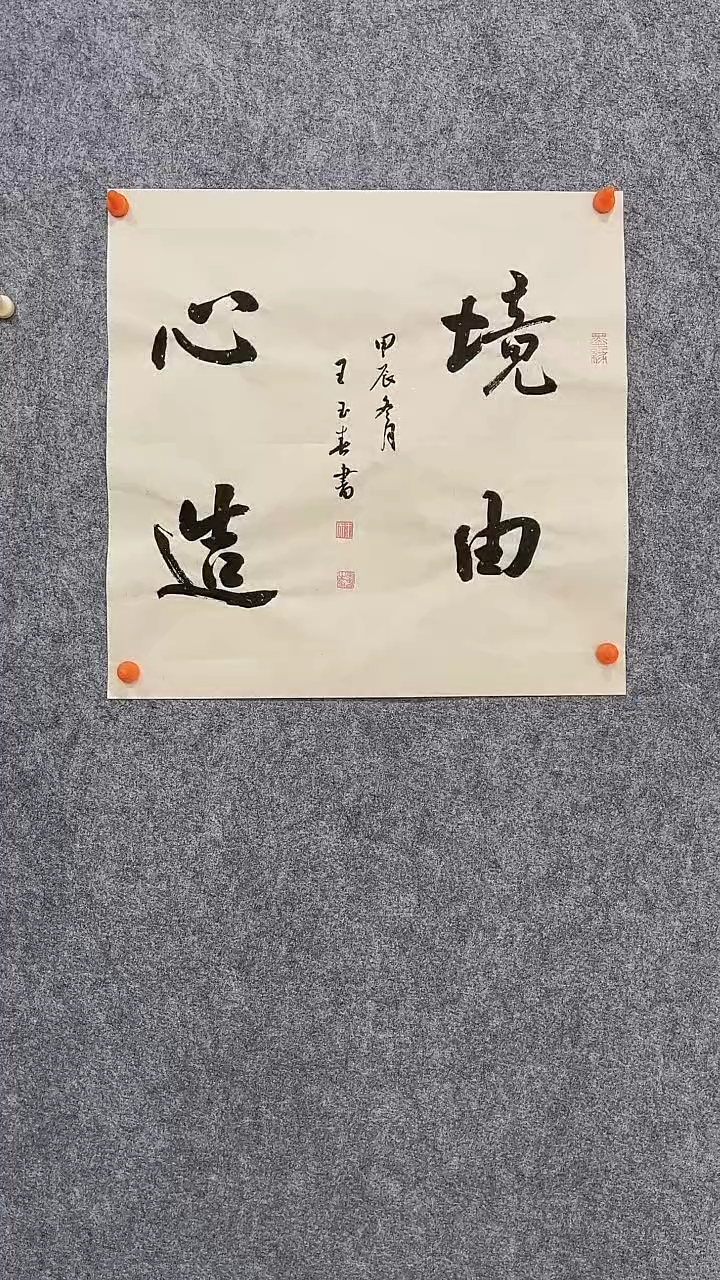 境由
心造
甲辰冬月
王玉春書